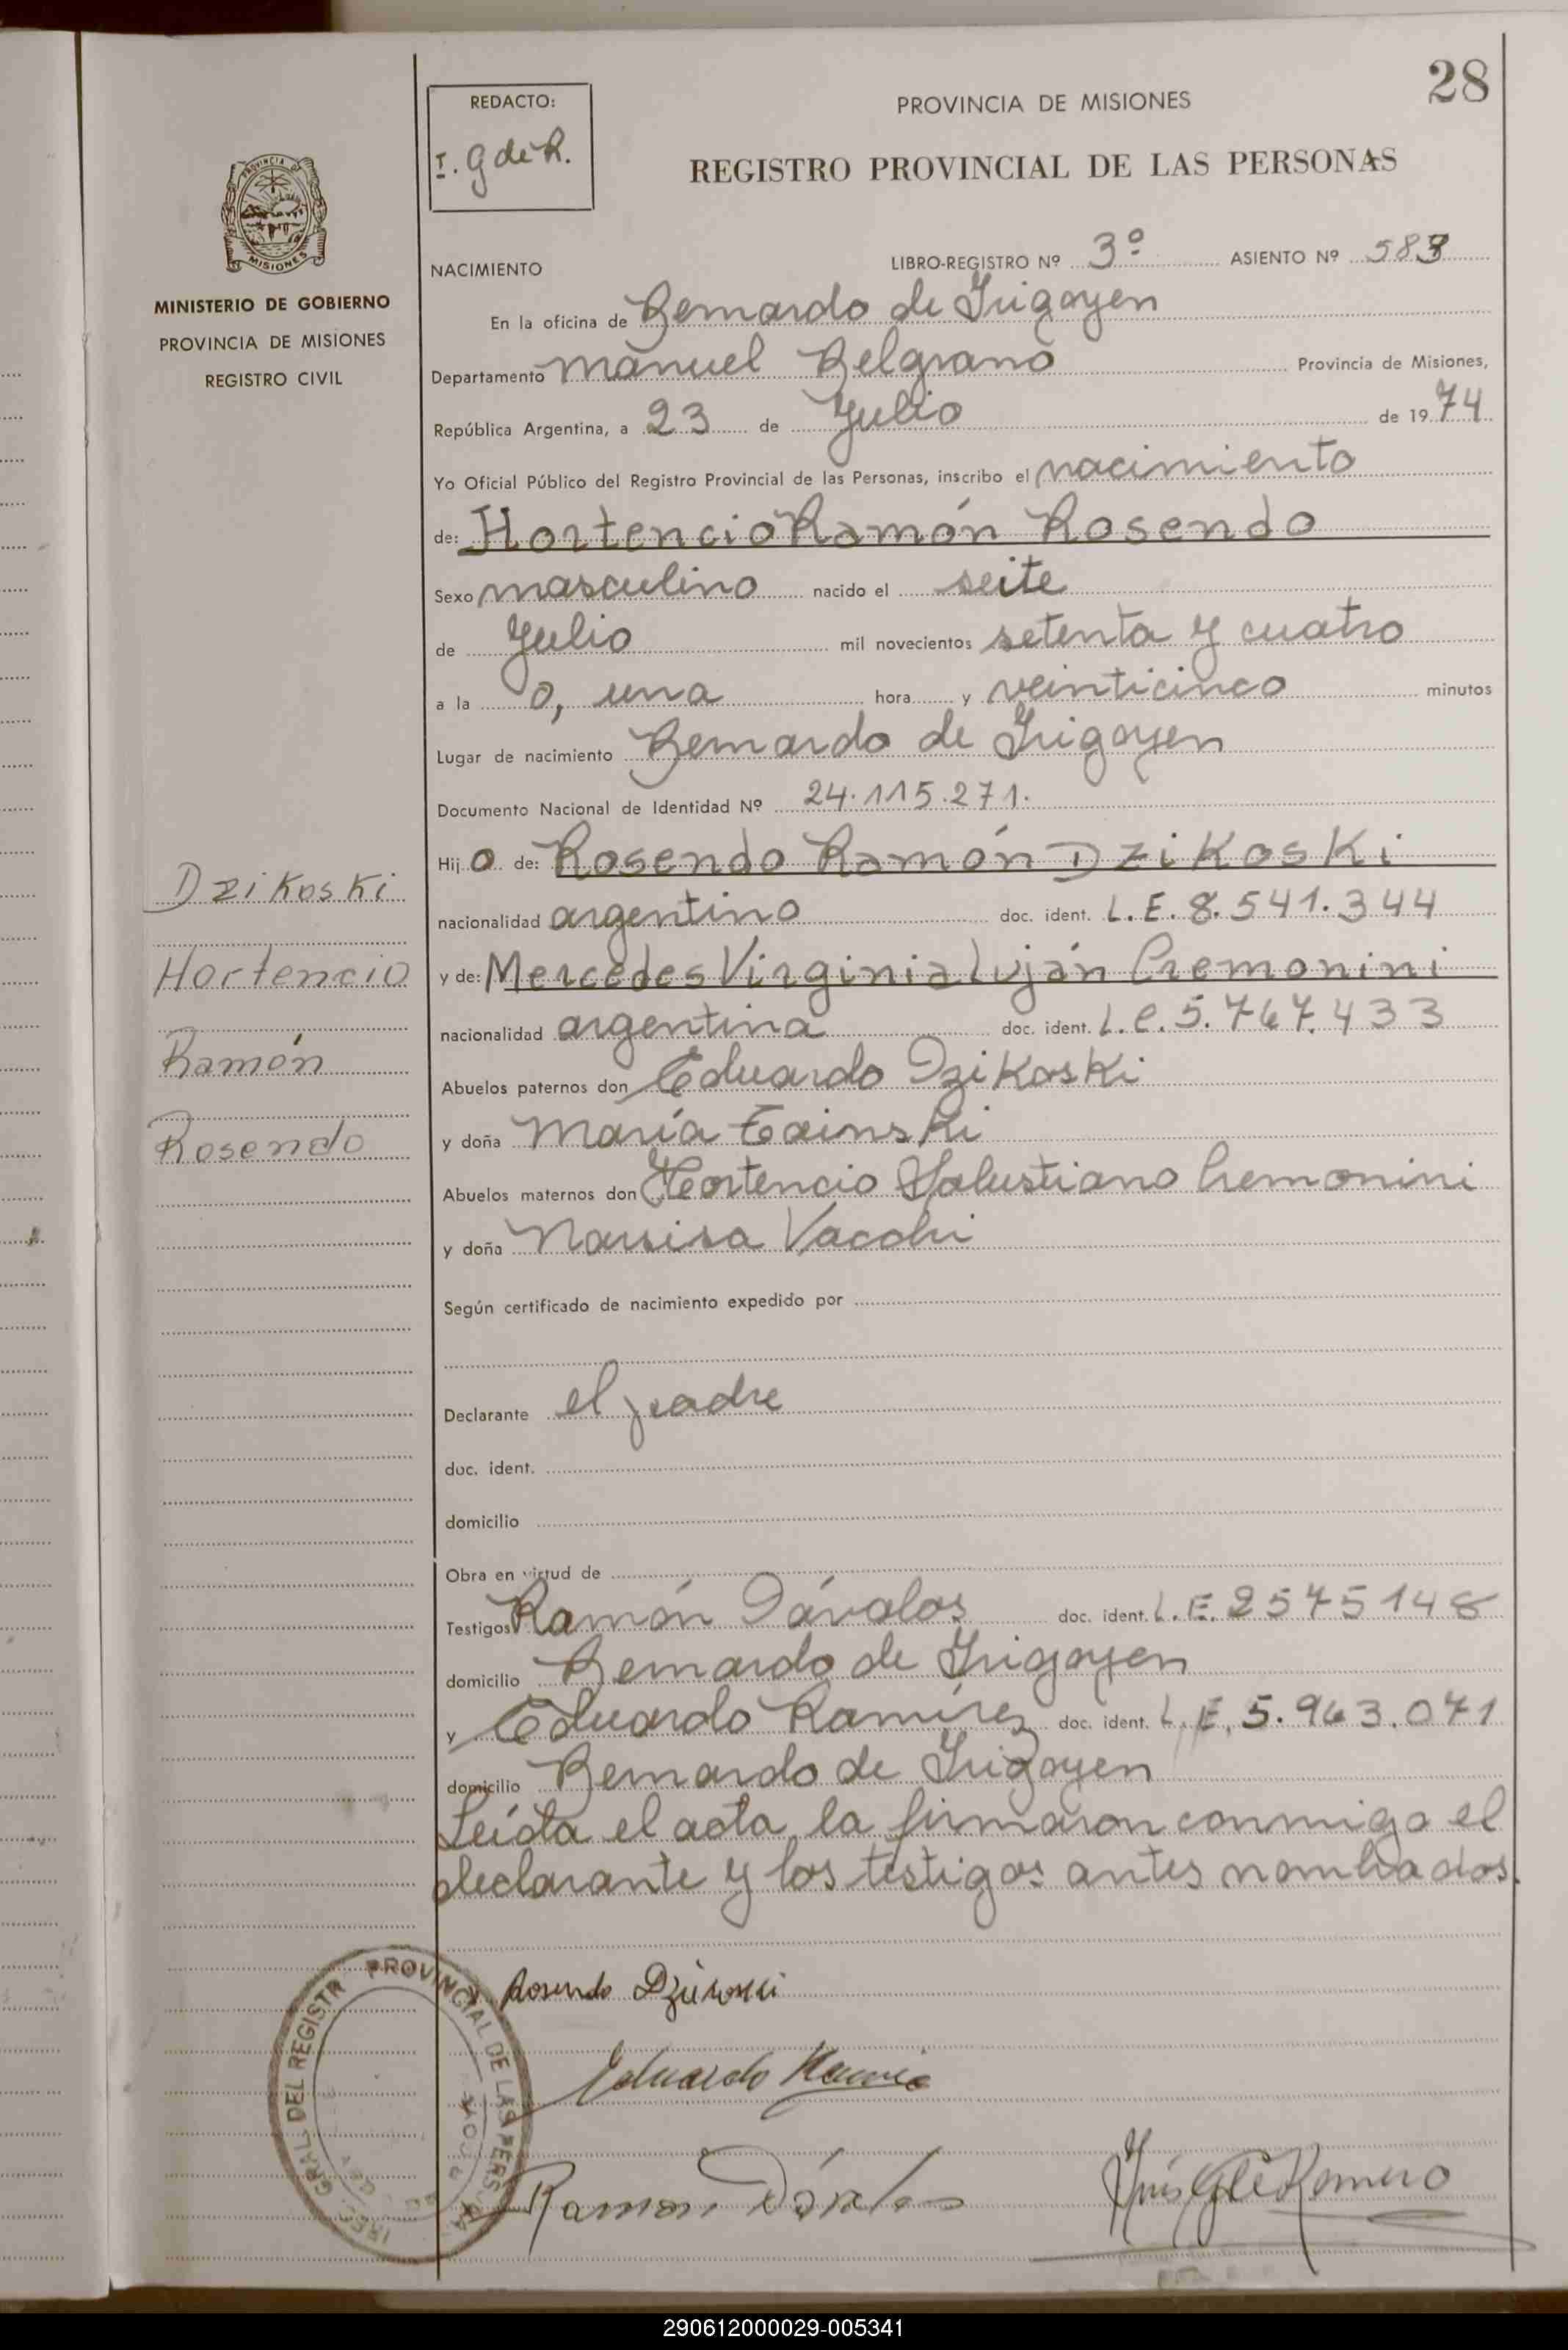 28
REDACTO:
I. G de R.
PROVINCIA DE MISIONES
REGISTRO PROVINCIAL DE LAS PERSONAS
PROVINCIA DE
MISIONES
MINISTERIO DE GOBIERNO
PROVINCIA DE MISIONES
REGISTRO CIVIL
NACIMIENTO LIBRO-REGISTRO Nº 3º ASIENTO Nº 583
En la oficina de Bernardo de Irigoyen
Departamento Manuel Belgrano Provincia de Misiones,
República Argentina, a 23 de Julio de 1974
Yo Oficial Público del Registro Provincial de las Personas, inscribo el nacimiento
de: Hortencio Ramón Rosendo
Sexo masculino nacido el seite
de Julio mil novecientos setenta y cuatro
a la 0, una hora y veinticinco minutos
Lugar de nacimiento Bernardo de Irigoyen
Documento Nacional de Identidad Nº 24.115.271.
Hijo de: Rosendo Ramón Dzikoski
nacionalidad argentino doc. ident. L.E. 8.541.344
y de: Mercedes Virginia Luján Cremonini
nacionalidad argentina doc. ident. L.C. 5.767.433
Abuelos paternos don Eduardo Dzikoski
y doña María
Abuelos maternos don Hortencio Salustiano Cremonini
y doña Narsisa
Según certificado de nacimiento expedido por
Declarante el padre
doc. ident.
domicilio
Obra en virtud de
Testigos Ramón Dávalos doc. ident. L.E. 2575148
domicilio Bernardo de Irigoyen
y Eduardo Ramírez doc. ident. L.E. 5.963.071
domicilio Bernardo de Irigoyen
Leída el acta, la firmaron conmigo el
declarante y los testigos antes nombrados.
Dzikoski
Hortencio
Ramón
Rosendo
Rosendo Dzikoski
Eduardo
Ramon
GRAL. DEL REGISTR PROVINCIAL DE LAS PERS
290612000029-005341